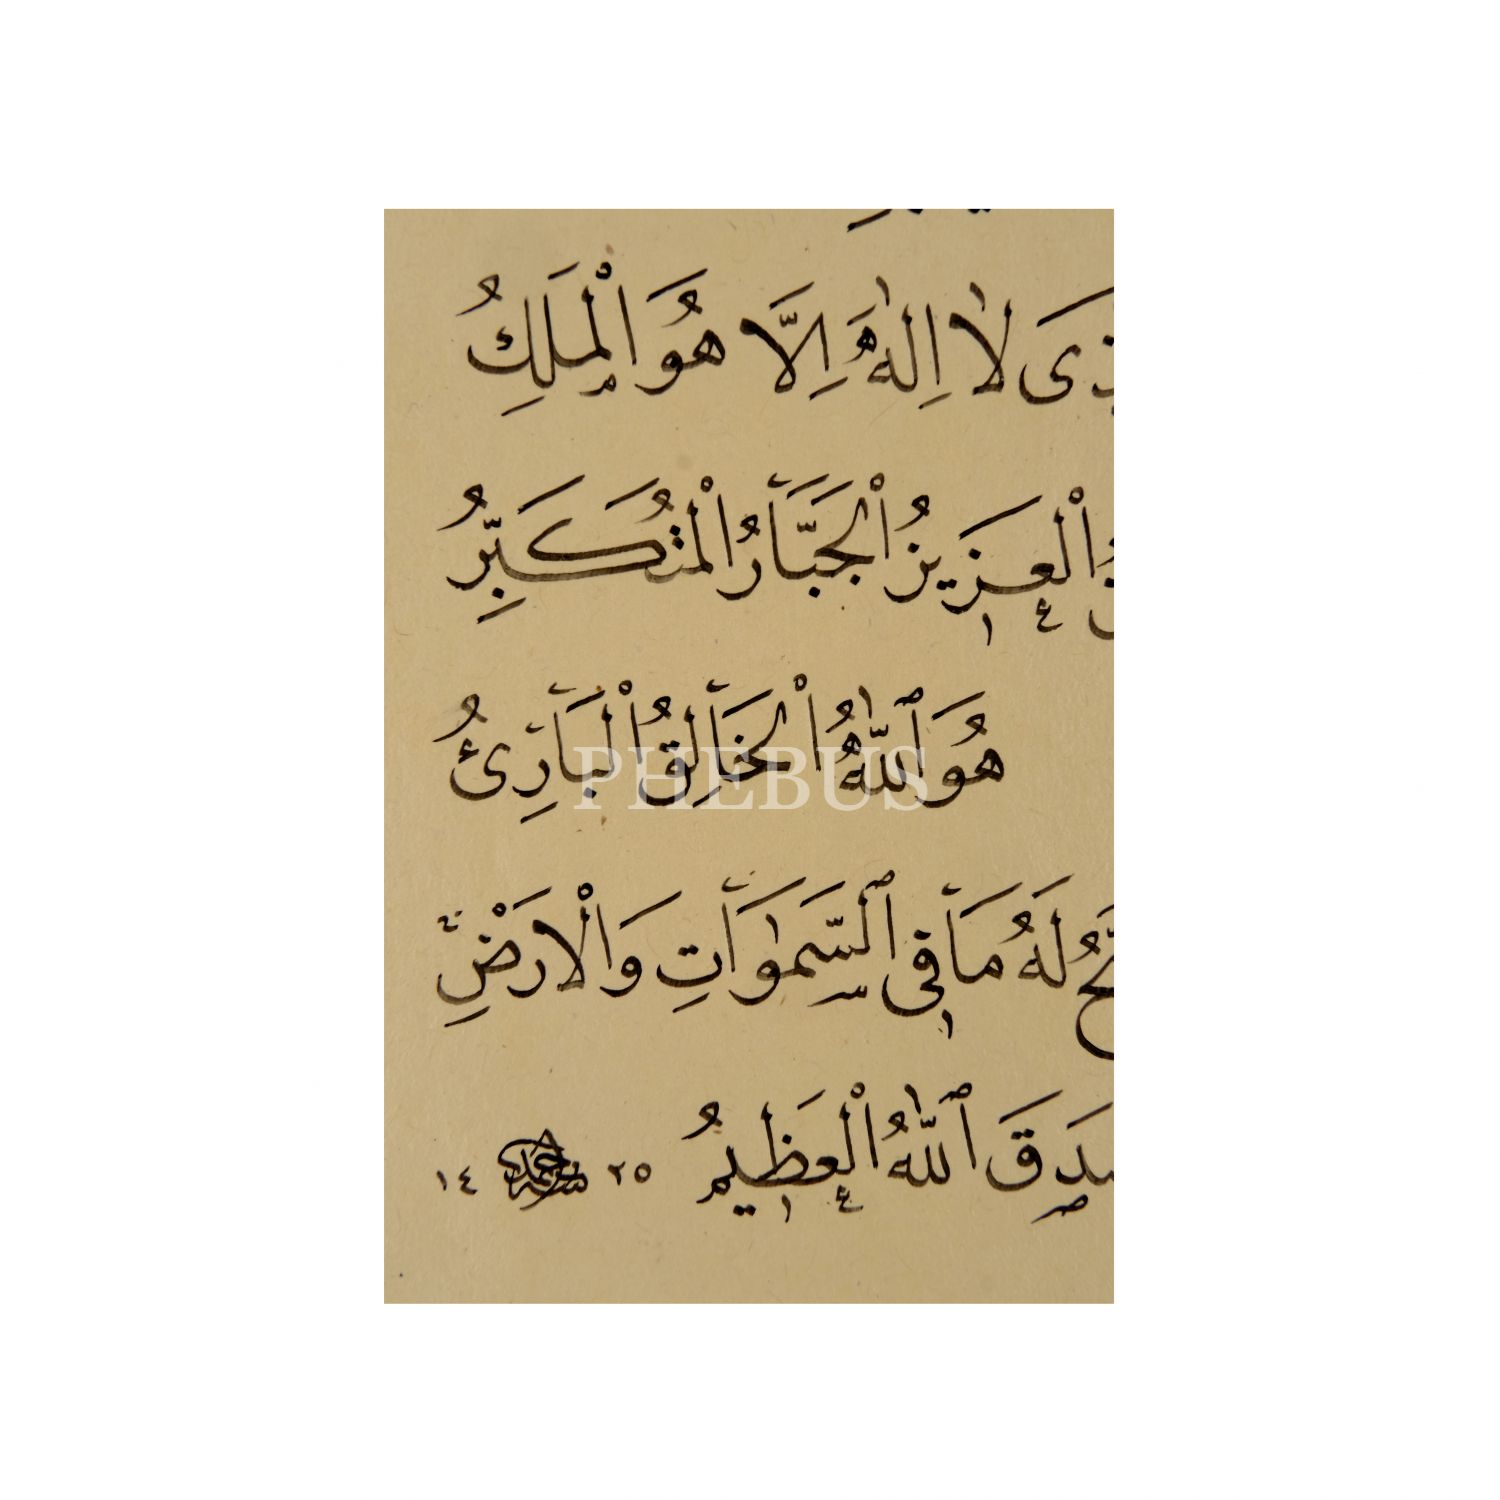 لَا اِلٰهَ اِلَّا هُوَ الْمَلِكُ
الْعَزِيزُ الْجَبَّارُ الْمُتَكَبِّرُ
هُوَ اللّٰهُ الْخَالِقُ الْبَارِئُ
PHEBUS
لَهُ مَا فِى السَّمٰوَاتِ وَالْاَرْضِ
صَدَقَ اللّٰهُ الْعَظِيمُ ٢٥ ١٤